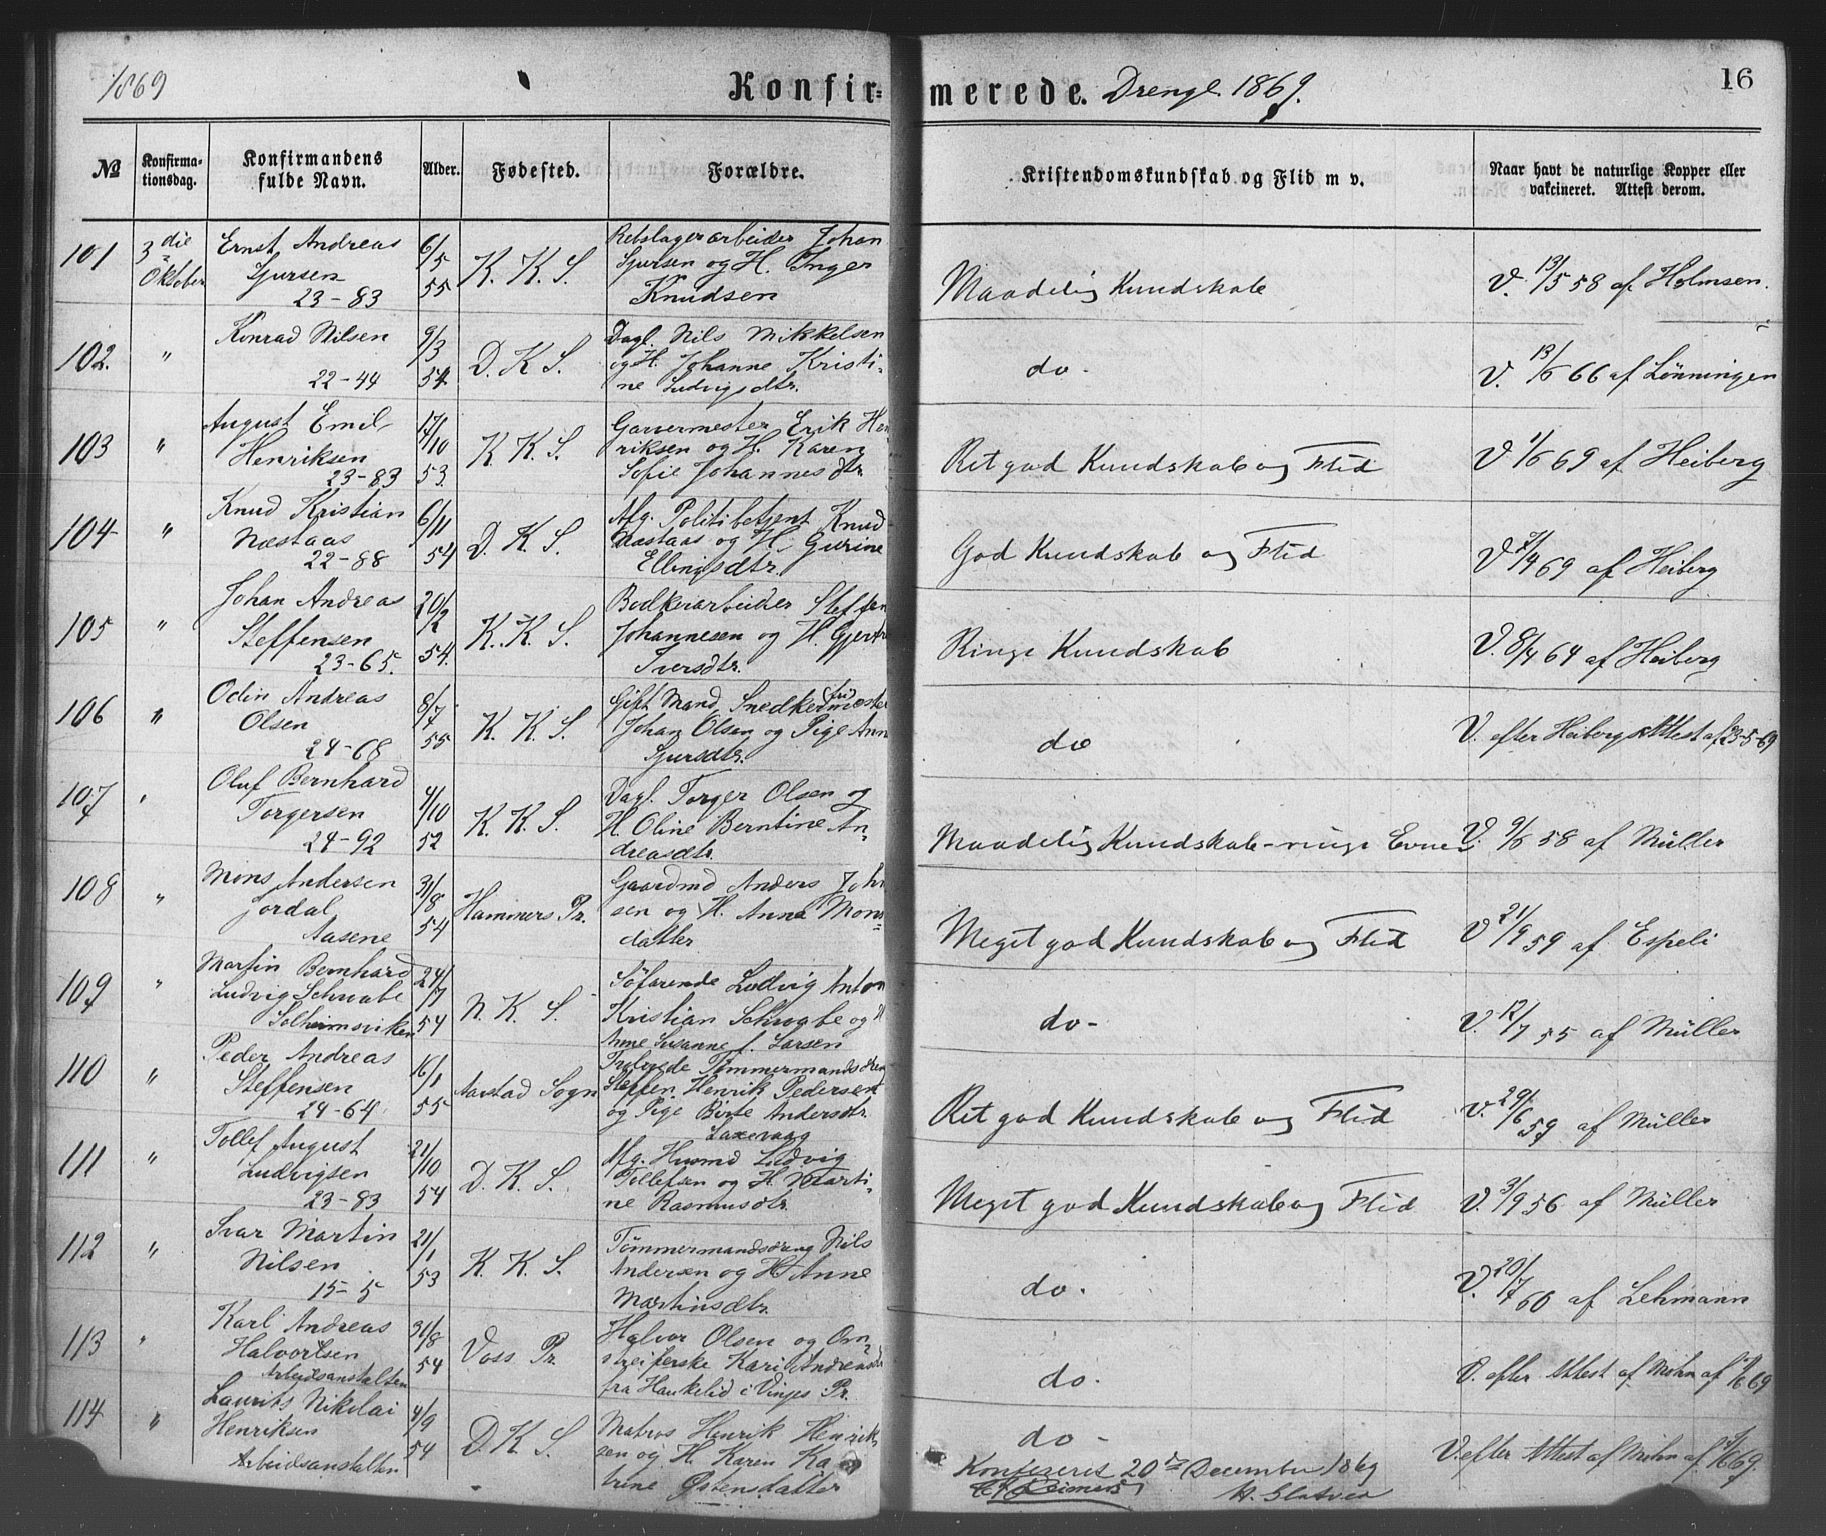 1869
Konfirmerede. Drenge 1869.
16
№ | Konfirmationsdag. | Konfirmandens fulde Navn. | Alder. | Fødested. | Forældre. | Kristendomskundskab og Flid m v. | Naar havt de naturlige Kopper eller vakcineret. Attest derom.
101 | 3die Oktober | Ernst Andreas Sjursen 23-83 | 6/5 55 | K. K. S. | Rebslagerarbeider Johan Sjursen og H. Inger Knudsen | Maadelig Kundskab | V. 13/5 58 af Holmsen.
102. | " | Konrad Nilsen 22-44 | 9/3 54 | D. K. S. | Dagl. Nils Mikkelsen og H. Johanne Kristine Ludvigsdtr. | do. | V. 13/6 66 af Lønningen
103 | " | August Emil Henriksen 23-83 | 17/10 53. | K. K. S. | Garvermester Erik Henriksen og H. Karen Sofie Johannesdtr. | Ret god Kundskab og Flid | V 1/6 69 af Heiberg
104 | " | Knud Kristian Næstaas 22-88 | 6/11 54 | D. K. S. | Afg. Politibetjent Knud Næstaas og H. Gurine Ellingsdtr. | God Kundskab og Flid | V 7/4 69 af Heiberg
105 | " | Johan Andreas Steffensen 23-65. | 20/2 54. | K. K. S. | Bødkerarbeider Steffen Johannesen og H. Gjertr Iversdtr. | Ringe Kundskab | V. 8/4 64 af Heiberg
106 | " | Odin Andreas Olsen 24-68 | 8/7 55 | K. K. S. | Gift Mand, Snedkermester Johan Olsen og Pige Ann Sjursdtr. | do | V. efter Heibergs Attest af 23-5-69
107 | " | Oluf Bernhard Torgersen 24-92 | 4/10 52 | K. K. S. | Dagl. Torger Olsen og H. Oline Berntine Andreasdtr. | Maadelig Kundskab - ringe Evner | V. 9/6 58 af Müller
108 | " | Mons Andersen Jordal Aasene | 31/8 54 | Hammers Pr. | Gaardmd Anders Johnsen og H. Anna Monsdatter | Meget god Kundskab og Flid | V 21/9 59 af Espeli
109 | " | Martin Bernhard Ludvig Schwabe Solheimsviken | 24/7 54 | N. K. S. | Söfarende Ludvig Anton Kristian Schwabe og H Anne Susanne f. Larsen | do- | V. 12/7 55 af Müller
110 | " | Peder Andreas Steffensen 24-64 | 16/1 55 | Aarstad Sogn | Trolovede Tömmermandsdreng Steffen Henrik Pedersen og Pige Birte Andersdtr. Saxevaag | Ret god Kundskab og Flid | V. 29/6 59 af Müller
111 | " | Tollef August Ludvigsen 23-83 | 21/10 54 | D. K. S. | Afg. Husmd Ludvig Tollefsen og H. Martine Rasmusdtr. | Meget god Kundskab og Flid | V. 3/9 56 af Müller
112 | " | Ivar Martin Nilsen 15-5 | 21/1 53 | K. K. S. | Tömmermandsdreng Nils Andersen og H Anne Martinsdtr. | do. | V. 20/7 60 af Lehmann
113 | " | Karl Andreas Halvorsen Arbeidsanstalten | 31/8 54 | Voss Pr. | Halvor Olsen og Omstreiferske Kari Andreasdtr fra Haukelid i Vinjes Pr. | do. | V. efter Attest af Mohn af 1/6 69
114 | " | Laurits Nikolai Henriksen Arbeidsanstalten | 4/9 54 | D. K. S. | Matros Henrik Henriksen og H. Karen Katrine Østensdatter | do - | V. efter Attest af Mohn af 1/6 69.
Konfereret 20de December 1869
C. Reimers